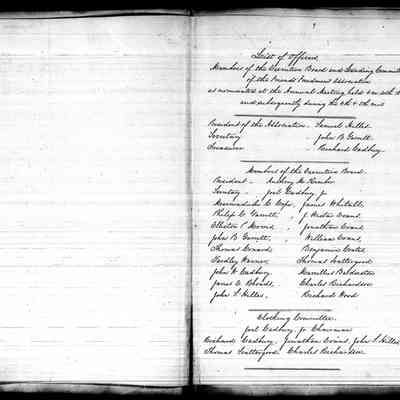 List of Officers
Members of the Executive Board and Standing Committees
of the Friends Freedmen Association
as nominated at the Annual Meeting held 4 mo 16th
and subsequently during the
President of the Association. Samuel Hilles
Secretary John B Garrett
Treasurer " Richard Cadbury
Members of the Executive Board.
President - Anthony M Kimber
Secretary - Joel Cadbury Jr
Marmaduke C Cope, James Whitall
Philip C Garrett, J Wistar Evans
Elliston P Morris " Jonathan Evans
John B Garrett, " William Evans,
Thomas Conard, Benjamin Coates
Yardley Warner, Thomas Scattergood
John W Cadbury Marcellus Balderston
James E Rhoads, Charles Richardson
John S Hilles, Richard Wood
Clothing Committee.
Joel Cadbury, Jr Chairman
Richard Cadbury, Jonathan Evans, John S Hilles
Thomas Scattergood, Charles Richardson